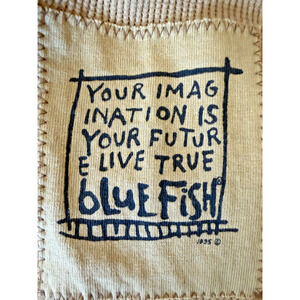 YOUR IMAG
INATION IS
YOUR FUTUR
E LIVE TRUE
bLUEFiSH
1995 ©